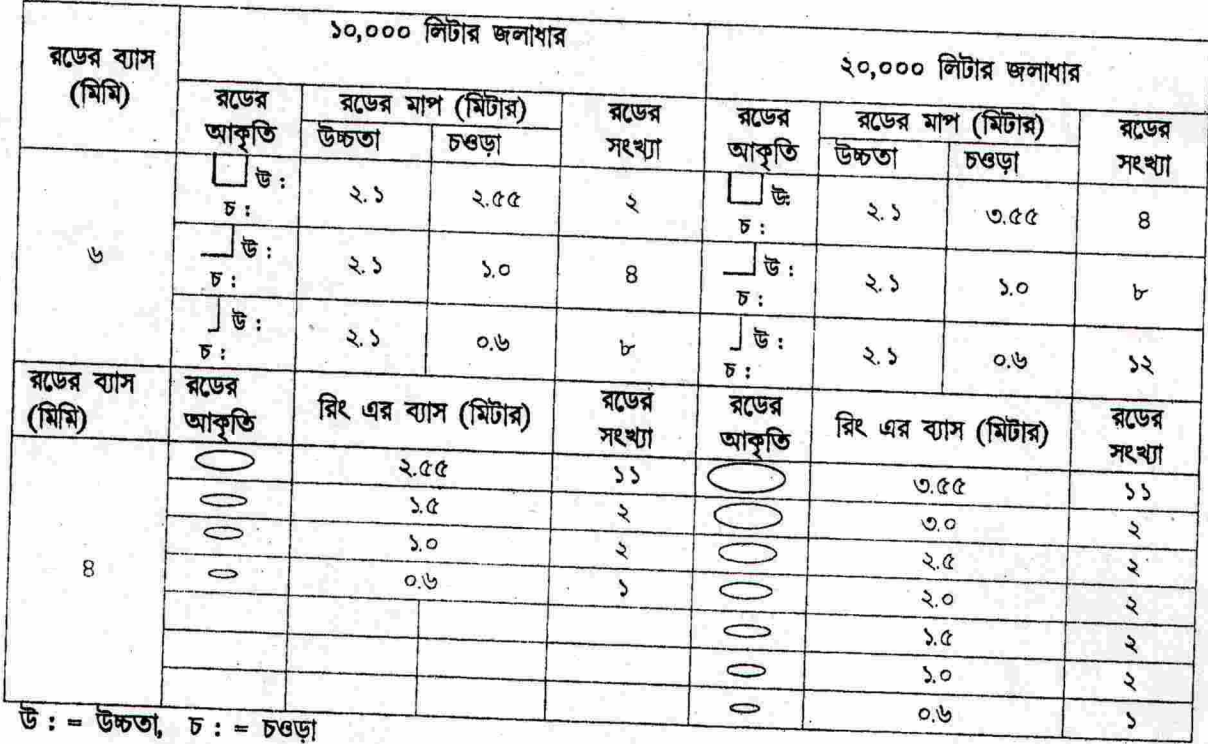 রডের ব্যাস (মিমি) ১০,০০০ লিটার জলাধার ২০,০০০ লিটার জলাধার
রডের আকৃতি রডের মাপ (মিটার) রডের সংখ্যা রডের আকৃতি রডের মাপ (মিটার) রডের সংখ্যা
উচ্চতা চওড়া উচ্চতা চওড়া
৬
উ : চ : ২.১ ২.৫৫ ২ উ: চ : ২.১ ৩.৫৫ ৪
উ : চ : ২.১ ১.০ ৪ উ : চ : ২.১ ১.০ ৮
উ : চ : ২.১ ০.৬ ৮ উ : চ : ২.১ ০.৬ ১২
রডের ব্যাস (মিমি) রডের আকৃতি রিং এর ব্যাস (মিটার) রডের সংখ্যা রডের আকৃতি রিং এর ব্যাস (মিটার) রডের সংখ্যা
৪
২.৫৫ ১১ ৩.৫৫ ১১
১.৫ ২ ৩.০ ২
১.০ ২ ২.৫ ২
০.৬ ১ ২.০ ২
১.৫ ২
১.০ ২
০.৬ ১
উ : = উচ্চতা, চ : = চওড়া